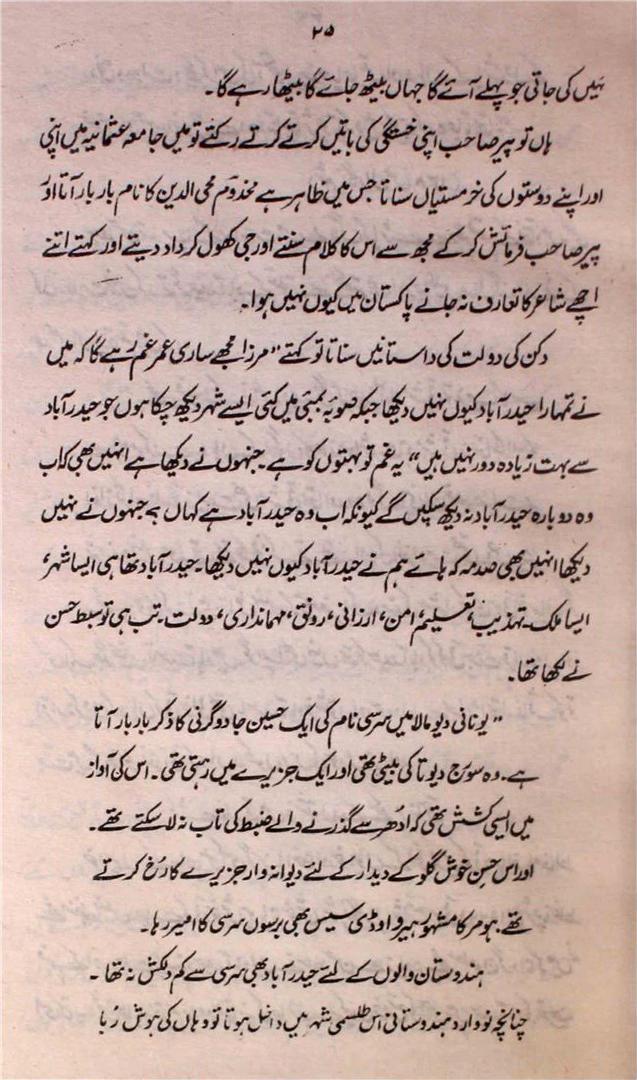 ۲۵
نہیں کی جاتی جو پہلے آئے گا جہاں بیٹھ جائے گا بیٹھا رہے گا۔
ہاں تو پیر صاحب اپنی خستگی کی باتیں کرتے کرتے رکتے تو میں جامعہ عثمانیہ میں اپنی
اور اپنے دوستوں کی خرمستیاں سناتا جس میں ظاہر ہے مخدوم محی الدین کا نام بار بار آتا اور
پیر صاحب فرمائش کر کے مجھ سے اس کا کلام سنتے اور جی کھول کر داد دیتے اور کہتے اتنے
اچھے شاعر کا تعارف نہ جانے پاکستان میں کیوں نہیں ہوا۔
دکن کی دولت کی داستانیں سناتا تو کہتے "مرزا مجھے ساری عمر غم رہے گا کہ میں
نے تمہارا حیدرآباد کیوں نہیں دیکھا جبکہ صوبۂ بمبئی میں کئی ایسے شہر دیکھ چکا ہوں جو حیدرآباد
سے بہت زیادہ دور نہیں ہیں" یہ غم تو بہتوں کو ہے۔ جنہوں نے دیکھا ہے انہیں بھی کہ اب
وہ دوبارہ حیدرآباد نہ دیکھ سکیں گے کیونکہ اب وہ حیدرآباد ہے کہاں؟ جنہوں نے نہیں
دیکھا انہیں بھی صدمہ کہ ہائے ہم نے حیدرآباد کیوں نہیں دیکھا۔ حیدرآباد تھا ہی ایسا شہر،
ایسا ملک۔ تہذیب، تعلیم، امن، ارزانی، رونق، مہمانداری، دولت۔ تب ہی تو سبط حسن
نے لکھا تھا۔
"یونانی دیو مالا میں سرسی نام کی ایک حسین جادوگرنی کا ذکر بار بار آتا
ہے۔ وہ سورج دیوتا کی بیٹی تھی اور ایک جزیرے میں رہتی تھی۔ اس کی آواز
میں ایسی کشش تھی کہ ادھر سے گذرنے والے ضبط کی تاب نہ لا سکتے تھے۔
اور اس حسن خوش گلو کے دیدار کے لئے دیوانہ وار جزیرے کا رُخ کرتے
تھے۔ ہومر کا مشہور ہیرو اوڈی سیس بھی برسوں سرسی کا اسیر رہا۔
ہندوستان والوں کے لئے حیدرآباد بھی سرسی سے کم دلکش نہ تھا۔
چنانچہ نووارد ہندوستانی اس طلسمی شہر میں داخل ہوتا تو وہاں کی ہوش رُبا